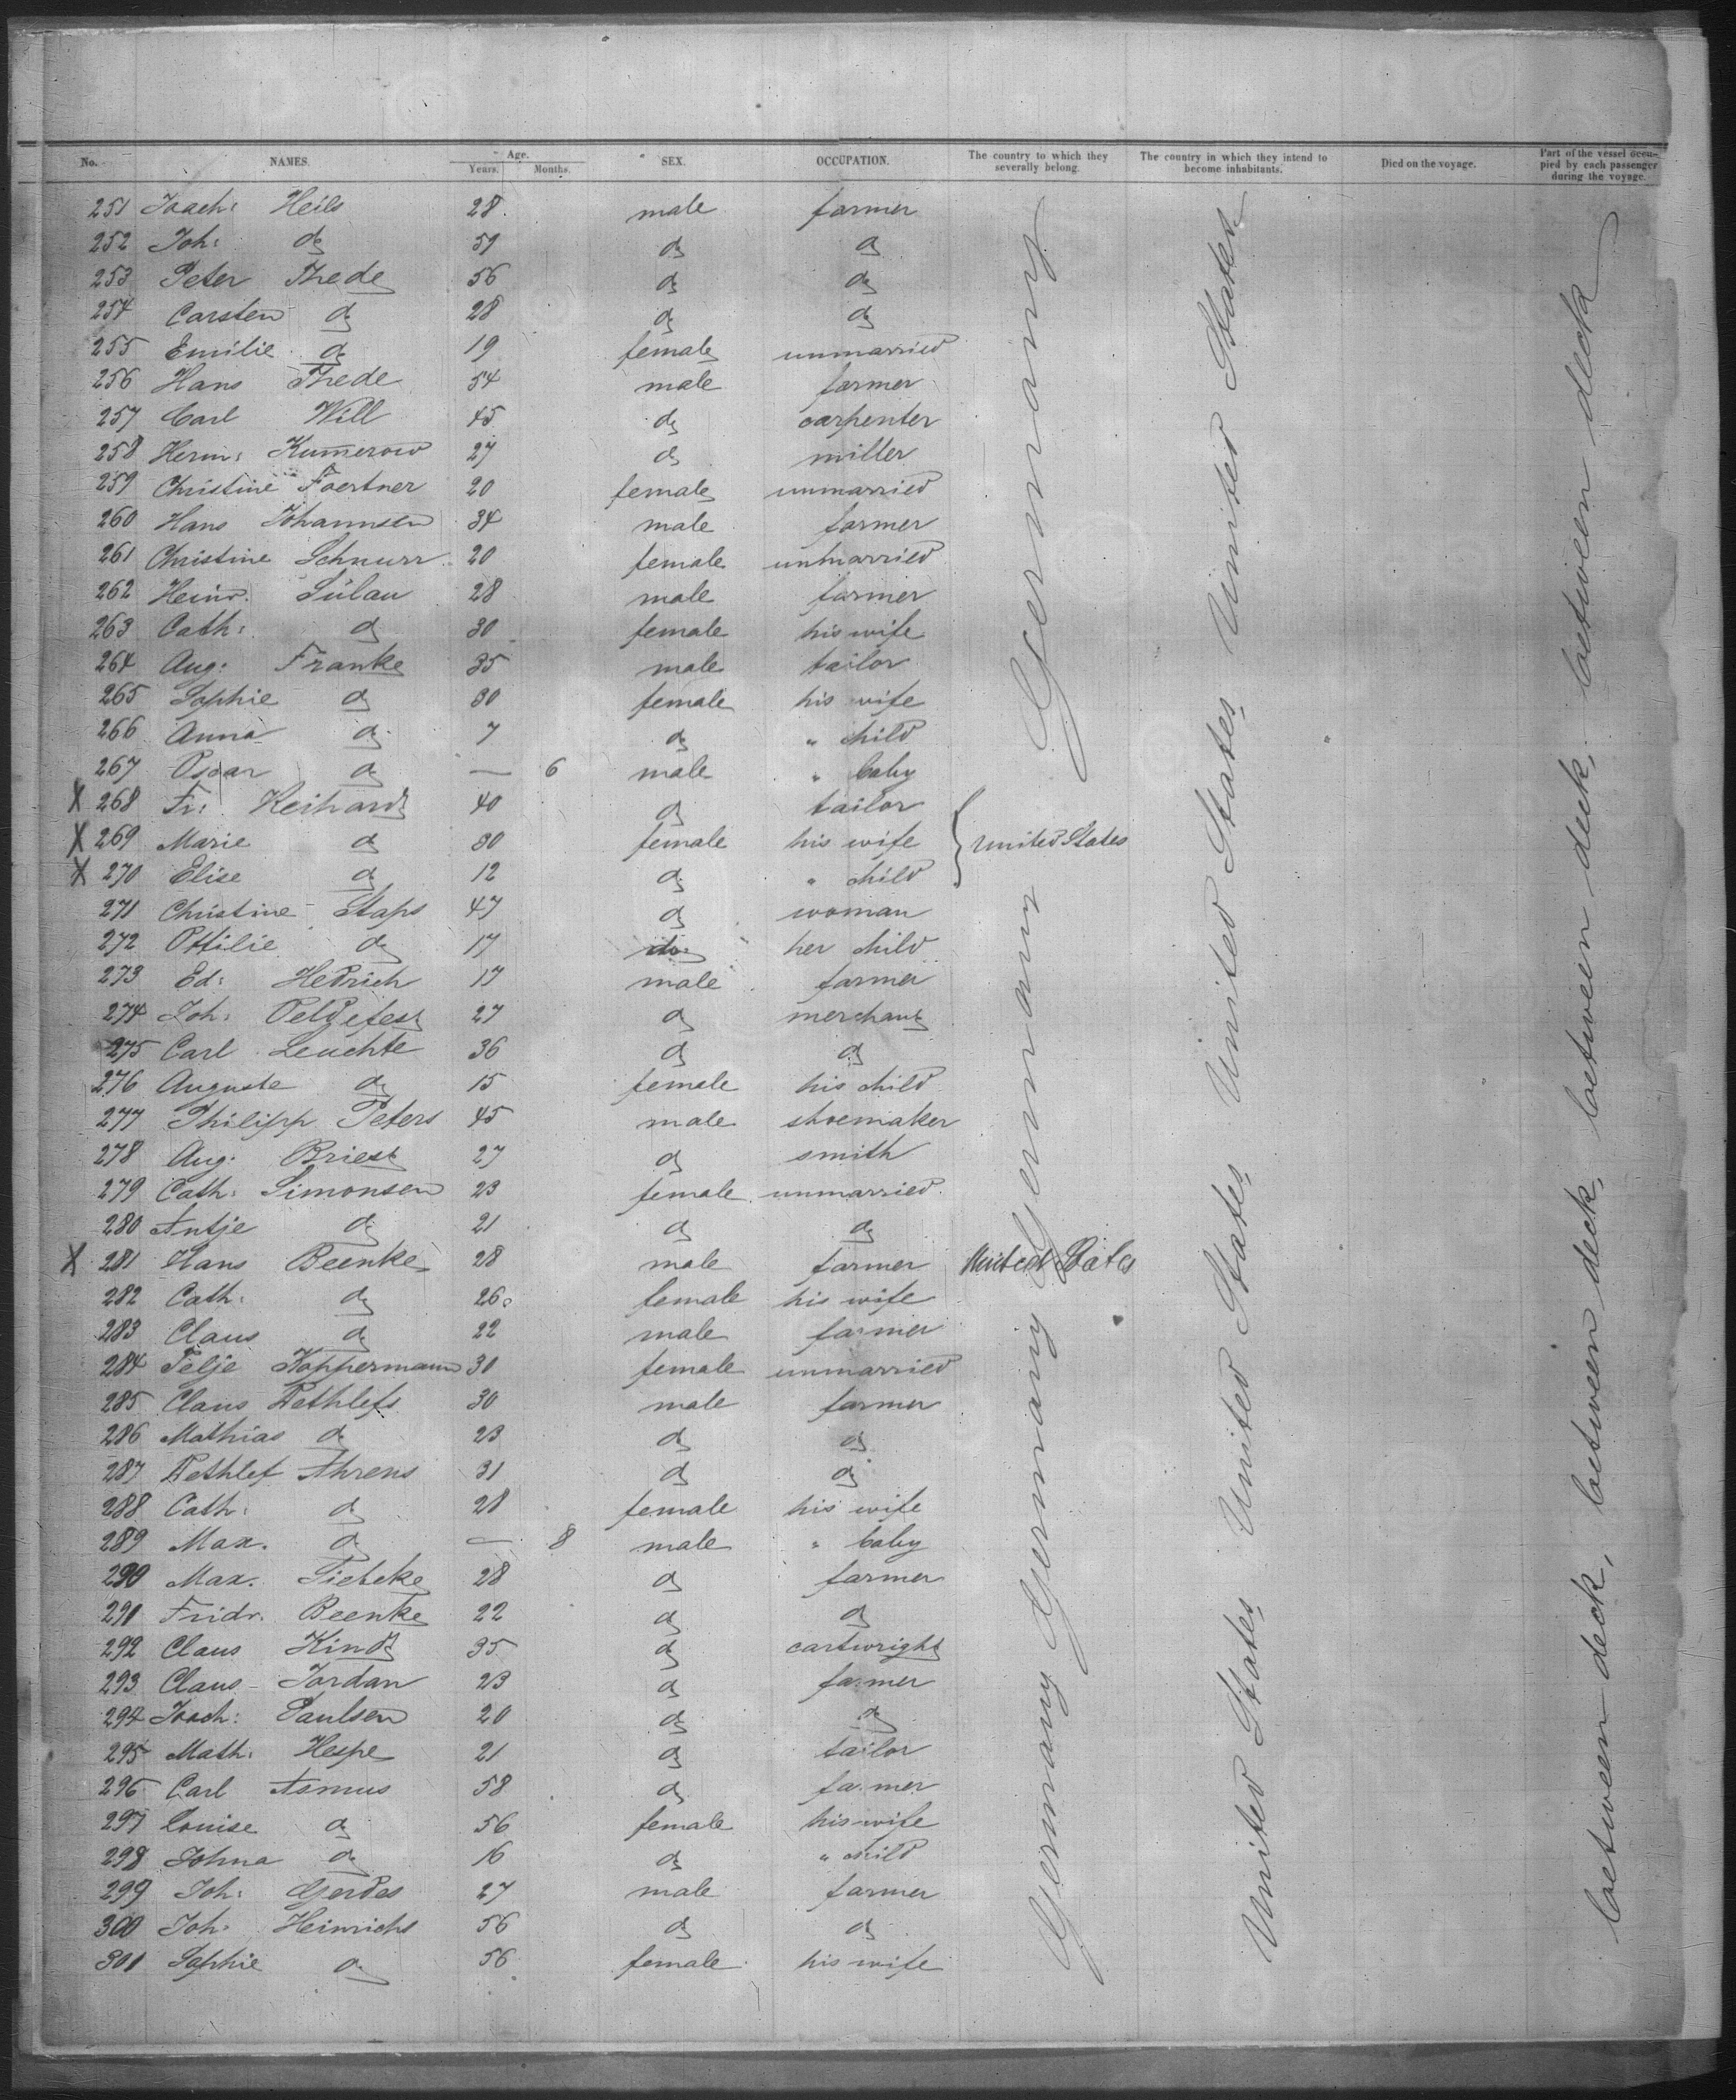 No. NAMES. Age. Years. Months. SEX. OCCUPATION. The country to which they severally belong. The country in which they intend to become inhabitants. Died on the voyage. Part of the vessel occupied by each passenger during the voyage.
251 Joach: Heils 28 male farmer
252 Joh: do 59 do do
253 Peter Thede 56 do do
254 Carsten do 28 do do
255 Emilie do 19 female unmarried
256 Hans Thede 54 male farmer
257 Carl Will 45 do carpenter
258 Herm: Kumerow 27 do miller
259 Christine Foertner 20 female unmarried
260 Hans Johannsen 34 male farmer
261 Christine Schnurr 20 female unmarried
262 Heinr. Sülau 28 male farmer
263 Cath: do 30 female his wife
264 Aug: Franke 35 male tailor
265 Sophie do 30 female his wife
266 Anna do 7 do " child
267 Oscar do — 6 male " baby
X 268 Fr: Keihardt 40 do tailor
X 269 Marie do 30 female his wife United States
X 270 Elise do 12 do " child
271 Christine Staps 47 do woman
272 Ottilie do 17 do her child
273 Ed: Hedrich 17 male farmer
274 Joh: 27 do merchant
275 Carl Leuchte 36 do do
276 Auguste do 15 female his child
277 Philipp Peters 45 male shoemaker
278 Aug: Briest 27 do smith
279 Cath: Simonsen 23 female unmarried
280 Antje do 21 do do
X 281 Hans Beenke 28 male farmer United States
282 Cath: do 26 female his wife
283 Claus do 22 male farmer
284 Telje Koppermann 30 female unmarried
285 Claus Dethlefs 30 male farmer
286 Mathias do 23 do do
287 Dethlef Ahrens 31 do do
288 Cath: do 28 female his wife
289 Max. do — 8 male " baby
290 Max. 28 do farmer
291 Fridr. Beenke 22 do do
292 Claus Kindt 35 do cartwright
293 Claus Jordan 23 do farmer
294 Joach: Paulsen 20 do do
295 Math: Hespe 21 do tailor
296 Carl Asmus 58 do farmer
297 Louise do 56 female his wife
298 Johna do 16 do " child
299 Joh: Gerdes 27 male farmer
300 Joh: Heinrichs 56 do do
301 Sophie do 56 female his wife
Germany Germany Germany Germany
United States United States United States United States
between deck, between deck, between deck, between deck